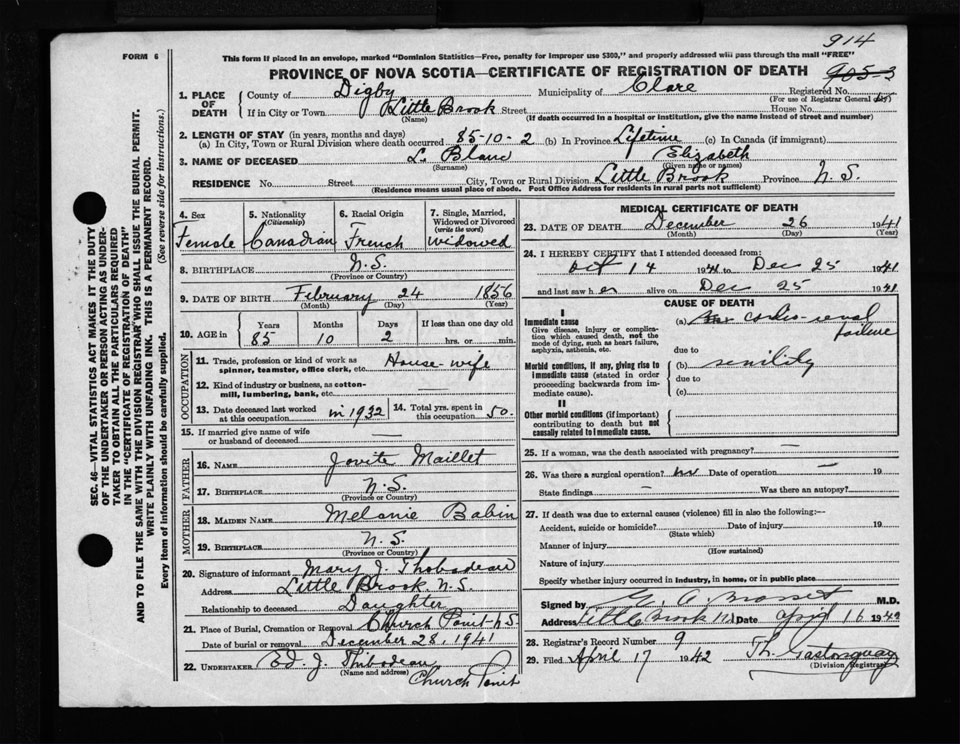 914
FORM 6
This form if placed in an envelope, marked "Dominion Statistics—Free, penalty for improper use $300," and properly addressed will pass through the mail "FREE"
PROVINCE OF NOVA SCOTIA—CERTIFICATE OF REGISTRATION OF DEATH 905-3
1. PLACE OF DEATH
County of Digby Municipality of Clare Registered No.
(For use of Registrar General
If in City or Town Little Brook Street House No.
(Name) (If death occurred in a hospital or institution, give the name instead of street and number)
2. LENGTH OF STAY (in years, months and days)
(a) In City, Town or Rural Division where death occurred 85-10-2 (b) In Province Lifetime (c) In Canada (if immigrant)
3. NAME OF DECEASED L. Blanc Elizabeth
(Surname) (Given name or names)
RESIDENCE No. Street City, Town or Rural Division Little Brook Province N.S.
(Residence means usual place of abode. Post Office Address for residents in rural parts not sufficient)
4. Sex Female
5. Nationality (Citizenship) Canadian
6. Racial Origin French
7. Single, Married, Widowed or Divorced (write the word) widowed
8. BIRTHPLACE N.S.
(Province or Country)
9. DATE OF BIRTH February 24 1856
(Month) (Day) (Year)
10. AGE in
Years Months Days If less than one day old
85 10 2 hrs. or min.
OCCUPATION
11. Trade, profession or kind of work as spinner, teamster, office clerk, etc. House-wife
12. Kind of industry or business, as cotton-mill, lumbering, bank, etc.
13. Date deceased last worked at this occupation in 1932
14. Total yrs. spent in this occupation 50.
15. If married give name of wife or husband of deceased —
FATHER
16. NAME Jovite Maillet
17. BIRTHPLACE N.S.
(Province or Country)
MOTHER
18. MAIDEN NAME Melanie Babin
19. BIRTHPLACE N.S.
(Province or Country)
20. Signature of informant Mary J. Thibodeau
Address Little Brook N.S.
Relationship to deceased Daughter
21. Place of Burial, Cremation or Removal Church Point N S
Date of burial or removal December 28, 1941
22. UNDERTAKER Ed. J. Thibodeau
(Name and address) Church Point
MEDICAL CERTIFICATE OF DEATH
23. DATE OF DEATH December 26 1941
(Month) (Day) (Year)
24. I HEREBY CERTIFY that I attended deceased from:
Oct 14 1941 to Dec 25 1941
and last saw h er alive on Dec 25 1941
CAUSE OF DEATH
I
Immediate cause
Give disease, injury or complication which caused death, not the mode of dying, such as heart failure, asphyxia, asthenia, etc.
(a) cardio-renal failure
due to
Morbid conditions, if any, giving rise to immediate cause (stated in order proceeding backwards from immediate cause).
(b) senility
due to
(c)
II
Other morbid conditions (if important) contributing to death but not causally related to immediate cause.
25. If a woman, was the death associated with pregnancy? —
26. Was there a surgical operation? no Date of operation — 19
State findings — Was there an autopsy?
27. If death was due to external causes (violence) fill in also the following:—
Accident, suicide or homicide? Date of injury 19
(State which)
Manner of injury
(How sustained)
Nature of injury
Specify whether injury occurred in industry, in home, or in public place
Signed by M.D.
Address Little Brook Date April 16 1942
28. Registrar's Record Number 9
29. Filed April 17 1942
(Division Registrar)
SEC. 46—VITAL STATISTICS ACT MAKES IT THE DUTY
OF THE UNDERTAKER OR PERSON ACTING AS UNDER-
TAKER TO OBTAIN ALL THE PARTICULARS REQUIRED
IN THE "CERTIFICATE OF REGISTRATION OF DEATH"
AND TO FILE THE SAME WITH THE DIVISION REGISTRAR WHO SHALL ISSUE THE BURIAL PERMIT.
WRITE PLAINLY WITH UNFADING INK. THIS IS A PERMANENT RECORD.
Every item of information should be carefully supplied. (See reverse side for instructions.)